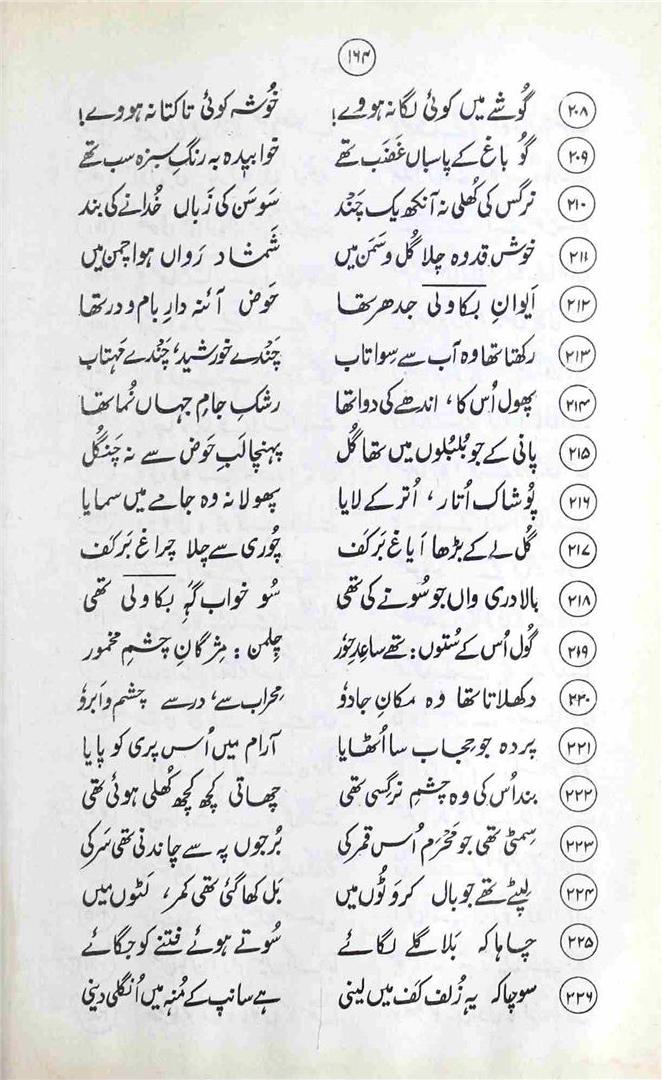 ۱۶۴
۲۰۸ گوشے میں کوئی لگا نہ ہووے! خُوشہ کوئی تاکتا نہ ہووے!
۲۰۹ گو باغ کے پاسباں غَضَب تھے خوابیدہ بہ رنگِ سبزہ سب تھے
۲۱۰ نرگس کی کُھلی نہ آنکھ یک چَند سَوسَن کی زَباں خُدا نے کی بند
۲۱۱ خوش قد وہ چلا گُل و سَمَن میں شَمشاد رَواں ہوا چمن میں
۲۱۲ اَیوانِ بکاولی جدھر تھا حَوض آئنہ دارِ بام و در تھا
۲۱۳ رکھتا تھا وہ آب سے سِوا تاب چَندے خورشید، چَندے مَہتاب
۲۱۴ پھول اُس کا، اندھے کی دوا تھا رشکِ جامِ جہاں نُما تھا
۲۱۵ پانی کے جو بُلبُلوں میں تھا گُل پہنچا لبِ حَوض سے نہ چَنگُل
۲۱۶ پُوشاک اُتار، اُتر کے لایا پھولا نہ وہ جامے میں سمایا
۲۱۷ گُل لے کے بڑھا اَیاغ بَر کَف چُوری سے چلا چراغ بَر کَف
۲۱۸ بالادری واں جو سُونے کی تھی سُو خواب گہِ بکاولی تھی
۲۱۹ گول اُس کے سُتوں: تھے ساعدِ حُور چِلمن: مِژگانِ چشمِ مخمور
۲۲۰ دکھلاتا تھا وہ مکانِ جادوٗ محراب سے، در سے چشم و ابروٗ
۲۲۱ پردہ جو حِجاب سا اُٹھایا آرام میں اُس پری کو پایا
۲۲۲ بند اُس کی وہ چشمِ نرگسی تھی چھاتی کچھ کچھ کُھلی ہوئی تھی
۲۲۳ سِمٹی تھی جو مَحْرَم اُس قمر کی بُرجوں پہ سے چاندنی تھی سَرکی
۲۲۴ لِپٹے تھے جو بال کروَٹوں میں بَل کھا گئی تھی کمر، لَٹوں میں
۲۲۵ چاہا کہ بَلا گلے لگائے سُوتے ہوئے فتنے کو جگائے
۲۲۶ سوچا کہ یہ زُلف کَف میں لینی ہے سانپ کے مُنہ میں اُنگلی دینی